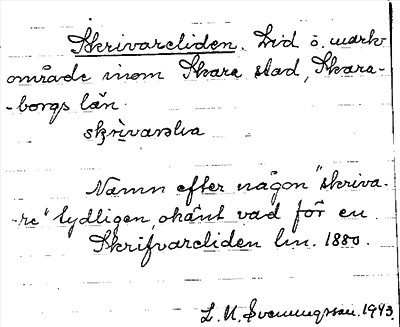 Skrivareliden. Lid o. mark-
område inom Skara stad, Skara-
-borgs län.
skrìvarəlıa
Namn efter någon "skriva-
-re" tydligen, okänt vad för en.
Skrifvareliden lm. 1880.
L. N. Svenungsson. 1943.